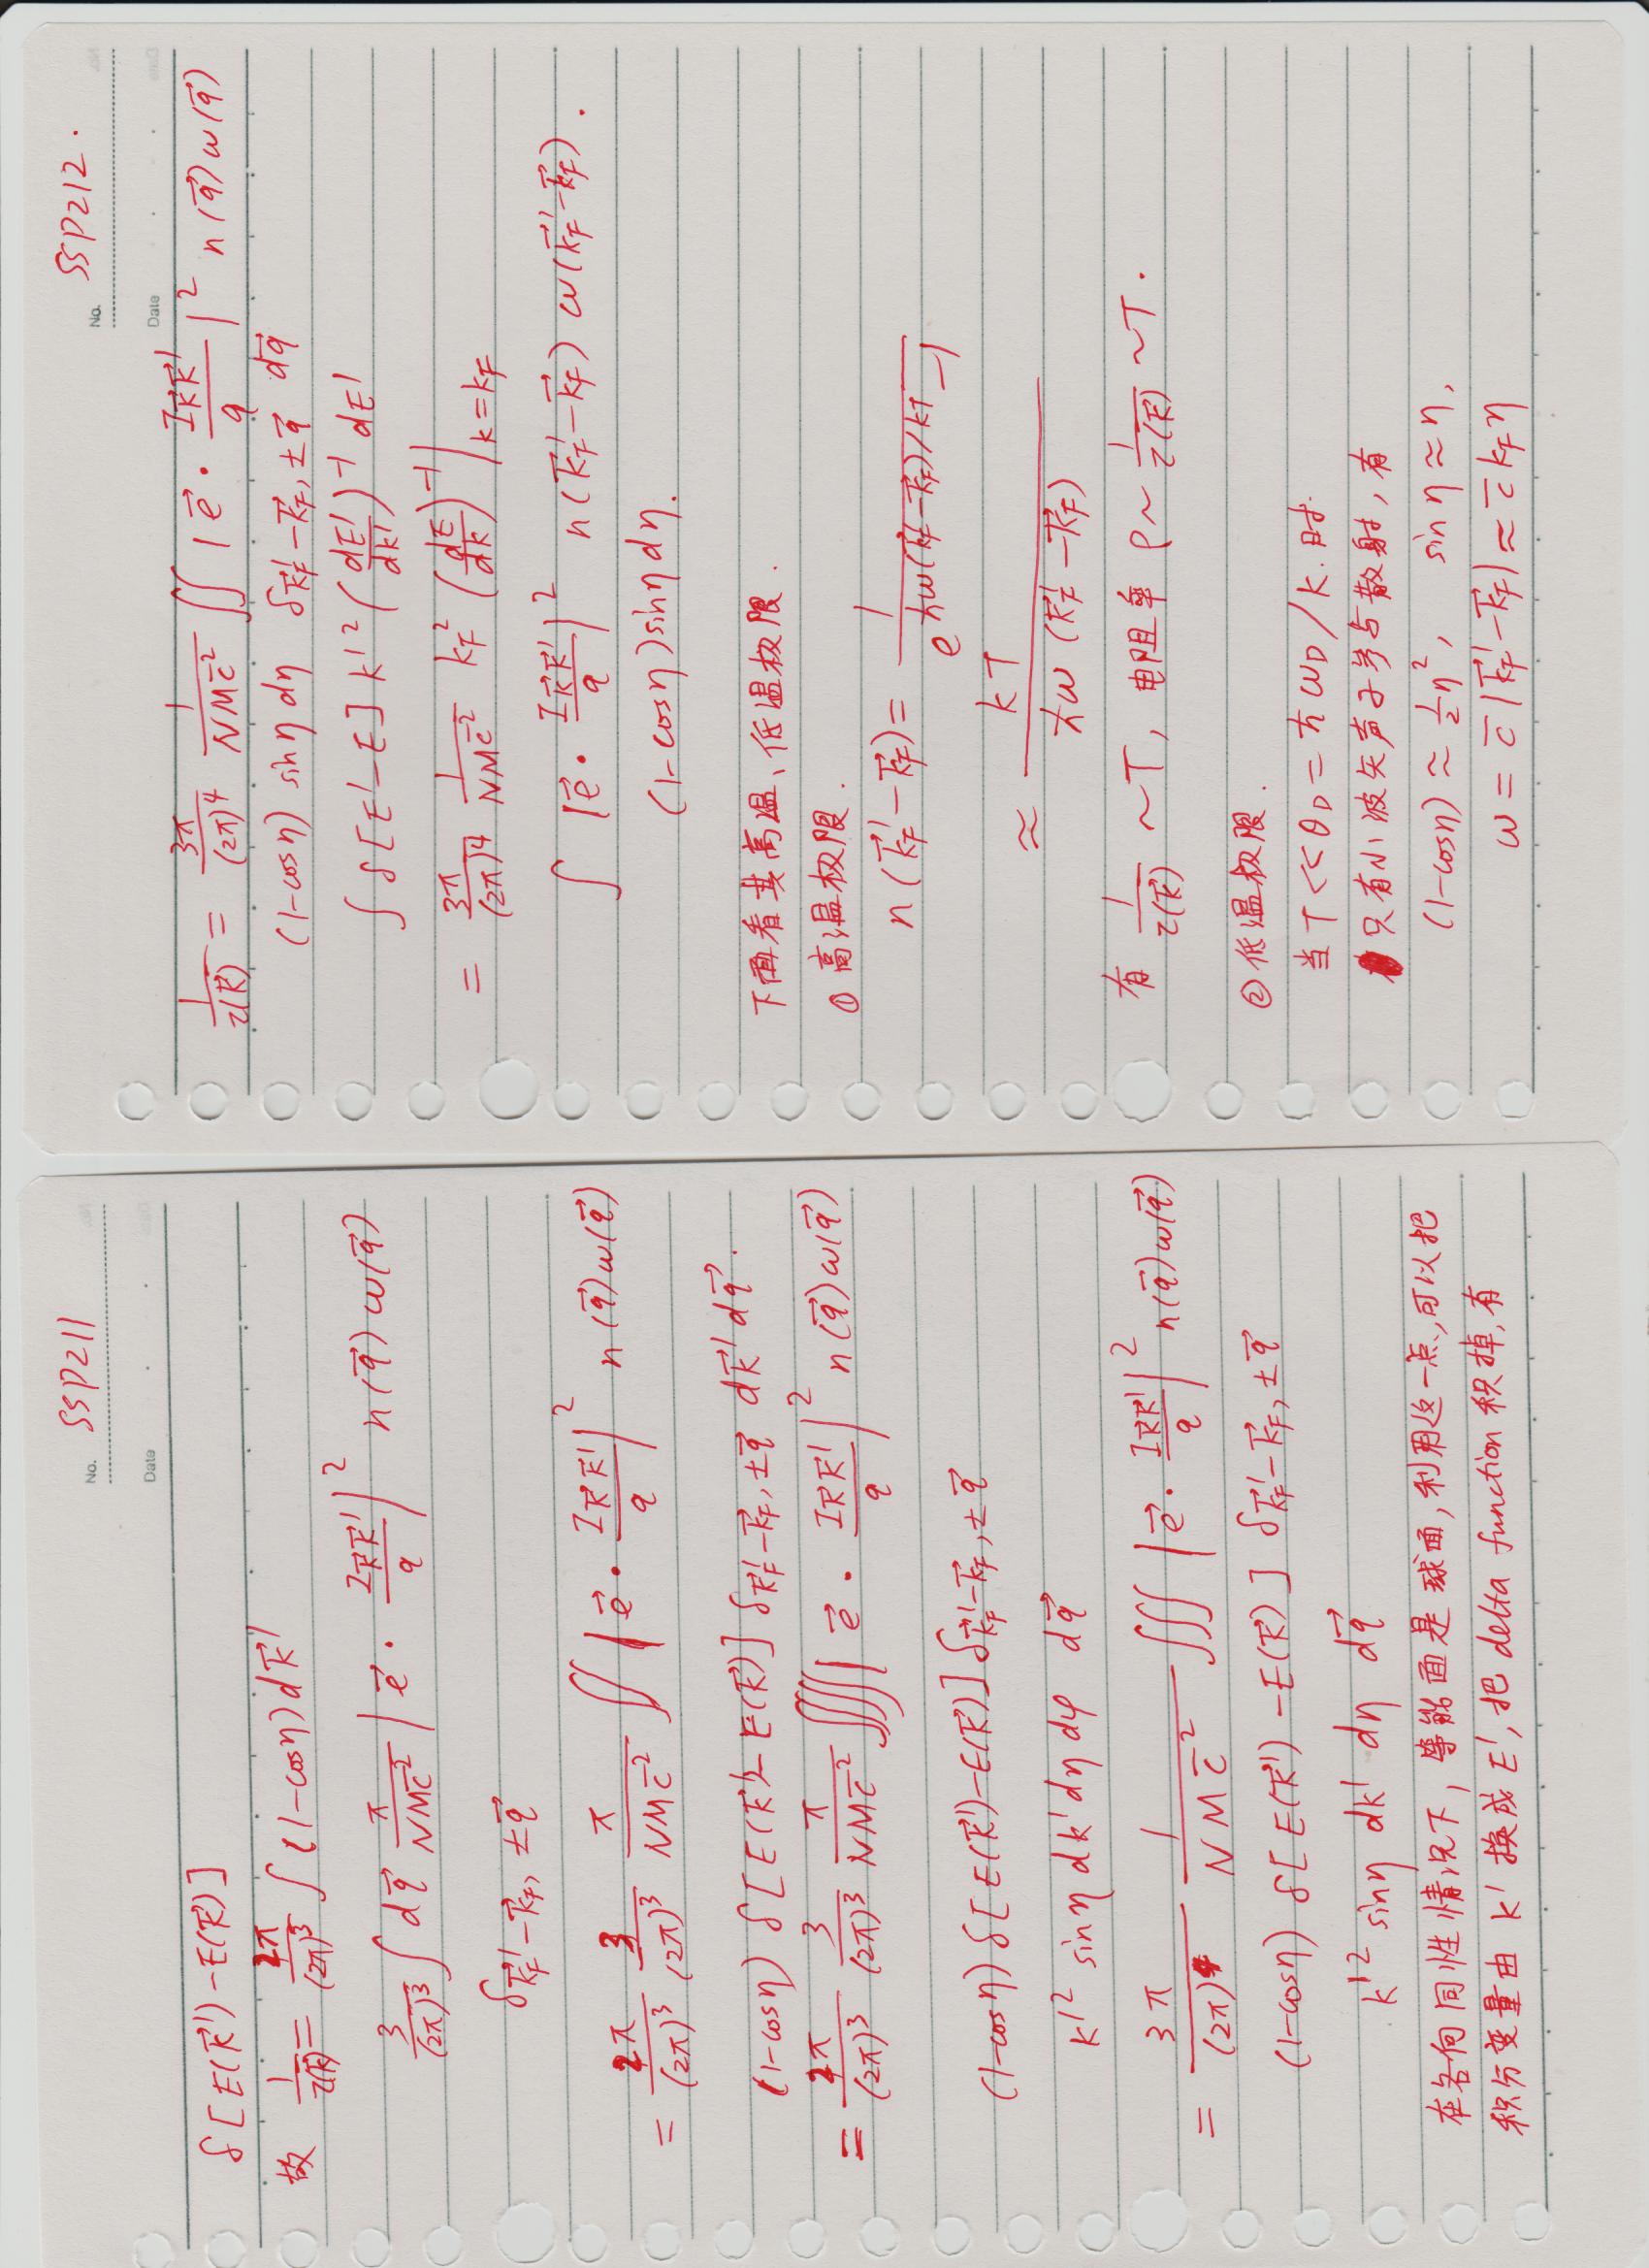 No. SSP211
Date
δ[E(k⃗′)−E(k⃗)]
故 1/τ(k⃗) = 2π/(2π)³ ∫(1−cosη)dk⃗′
3/(2π)³ ∫dq⃗ π/(NMc̄²) |e⃗·I_{k⃗k⃗′}/q|² n(q⃗)ω(q⃗)
δ_{k⃗_F′−k⃗_F, ±q⃗}
= 2π/(2π)³ 3/(2π)³ π/(NMc̄²) ∬|e⃗·I_{k⃗k⃗′}/q|² n(q⃗)ω(q⃗)
(1−cosη) δ[E(k⃗′)−E(k⃗)] δ_{k⃗_F′−k⃗_F, ±q⃗} dk⃗′dq⃗.
= 2π/(2π)³ 3/(2π)³ π/(NMc̄²) ∭|e⃗·I_{k⃗k⃗′}/q|² n(q⃗)ω(q⃗)
(1−cosη) δ[E(k⃗′)−E(k⃗)] δ_{k⃗_F′−k⃗_F, ±q⃗}
k′² sinη dk′dηdφ dq⃗
= 3π/(2π)⁴ 1/(NMc̄²) ∭|e⃗·I_{k⃗k⃗′}/q|² n(q⃗)ω(q⃗)
(1−cosη) δ[E(k⃗′)−E(k⃗)] δ_{k⃗_F′−k⃗_F, ±q⃗}
k′² sinη dk′ dη dq⃗
在各向同性情况下,等能面是球面,利用这一点,可以把
积分变量由 k′ 换成 E′,把 delta function 积掉,有
No. SSP212.
Date
1/τ(k⃗) = 3π/(2π)⁴ 1/(NMc̄²) ∬|e⃗·I_{k⃗k⃗′}/q|² n(q⃗)ω(q⃗)
(1−cosη) sinηdη δ_{k⃗_F′−k⃗_F, ±q⃗} dq⃗
∫δ[E′−E] k′² (dE′/dk′)⁻¹ dE′
= 3π/(2π)⁴ 1/(NMc̄²) k_F² (dE/dk)⁻¹|_{k=k_F}
∫ |e⃗·I_{k⃗k⃗′}/q|² n(k⃗_F′−k⃗_F) ω(k⃗_F′−k⃗_F).
(1−cosη)sinηdη.
下面看其高温、低温极限.
① 高温极限.
n(k⃗_F′−k⃗_F) = 1/(e^{ħω(k⃗_F′−k⃗_F)/kT}−1)
≈ kT/(ħω(k⃗_F′−k⃗_F))
有 1/τ(k⃗) ~T, 电阻率 ρ~ 1/τ(k⃗) ~T.
② 低温极限.
当 T<<θ_D = ħω_D/k. 时.
只有小波矢声子参与散射,有
(1−cosη) ≈ ½η², sinη≈η,
ω = c̄|k⃗_F′−k⃗_F| ≈ c̄k_Fη